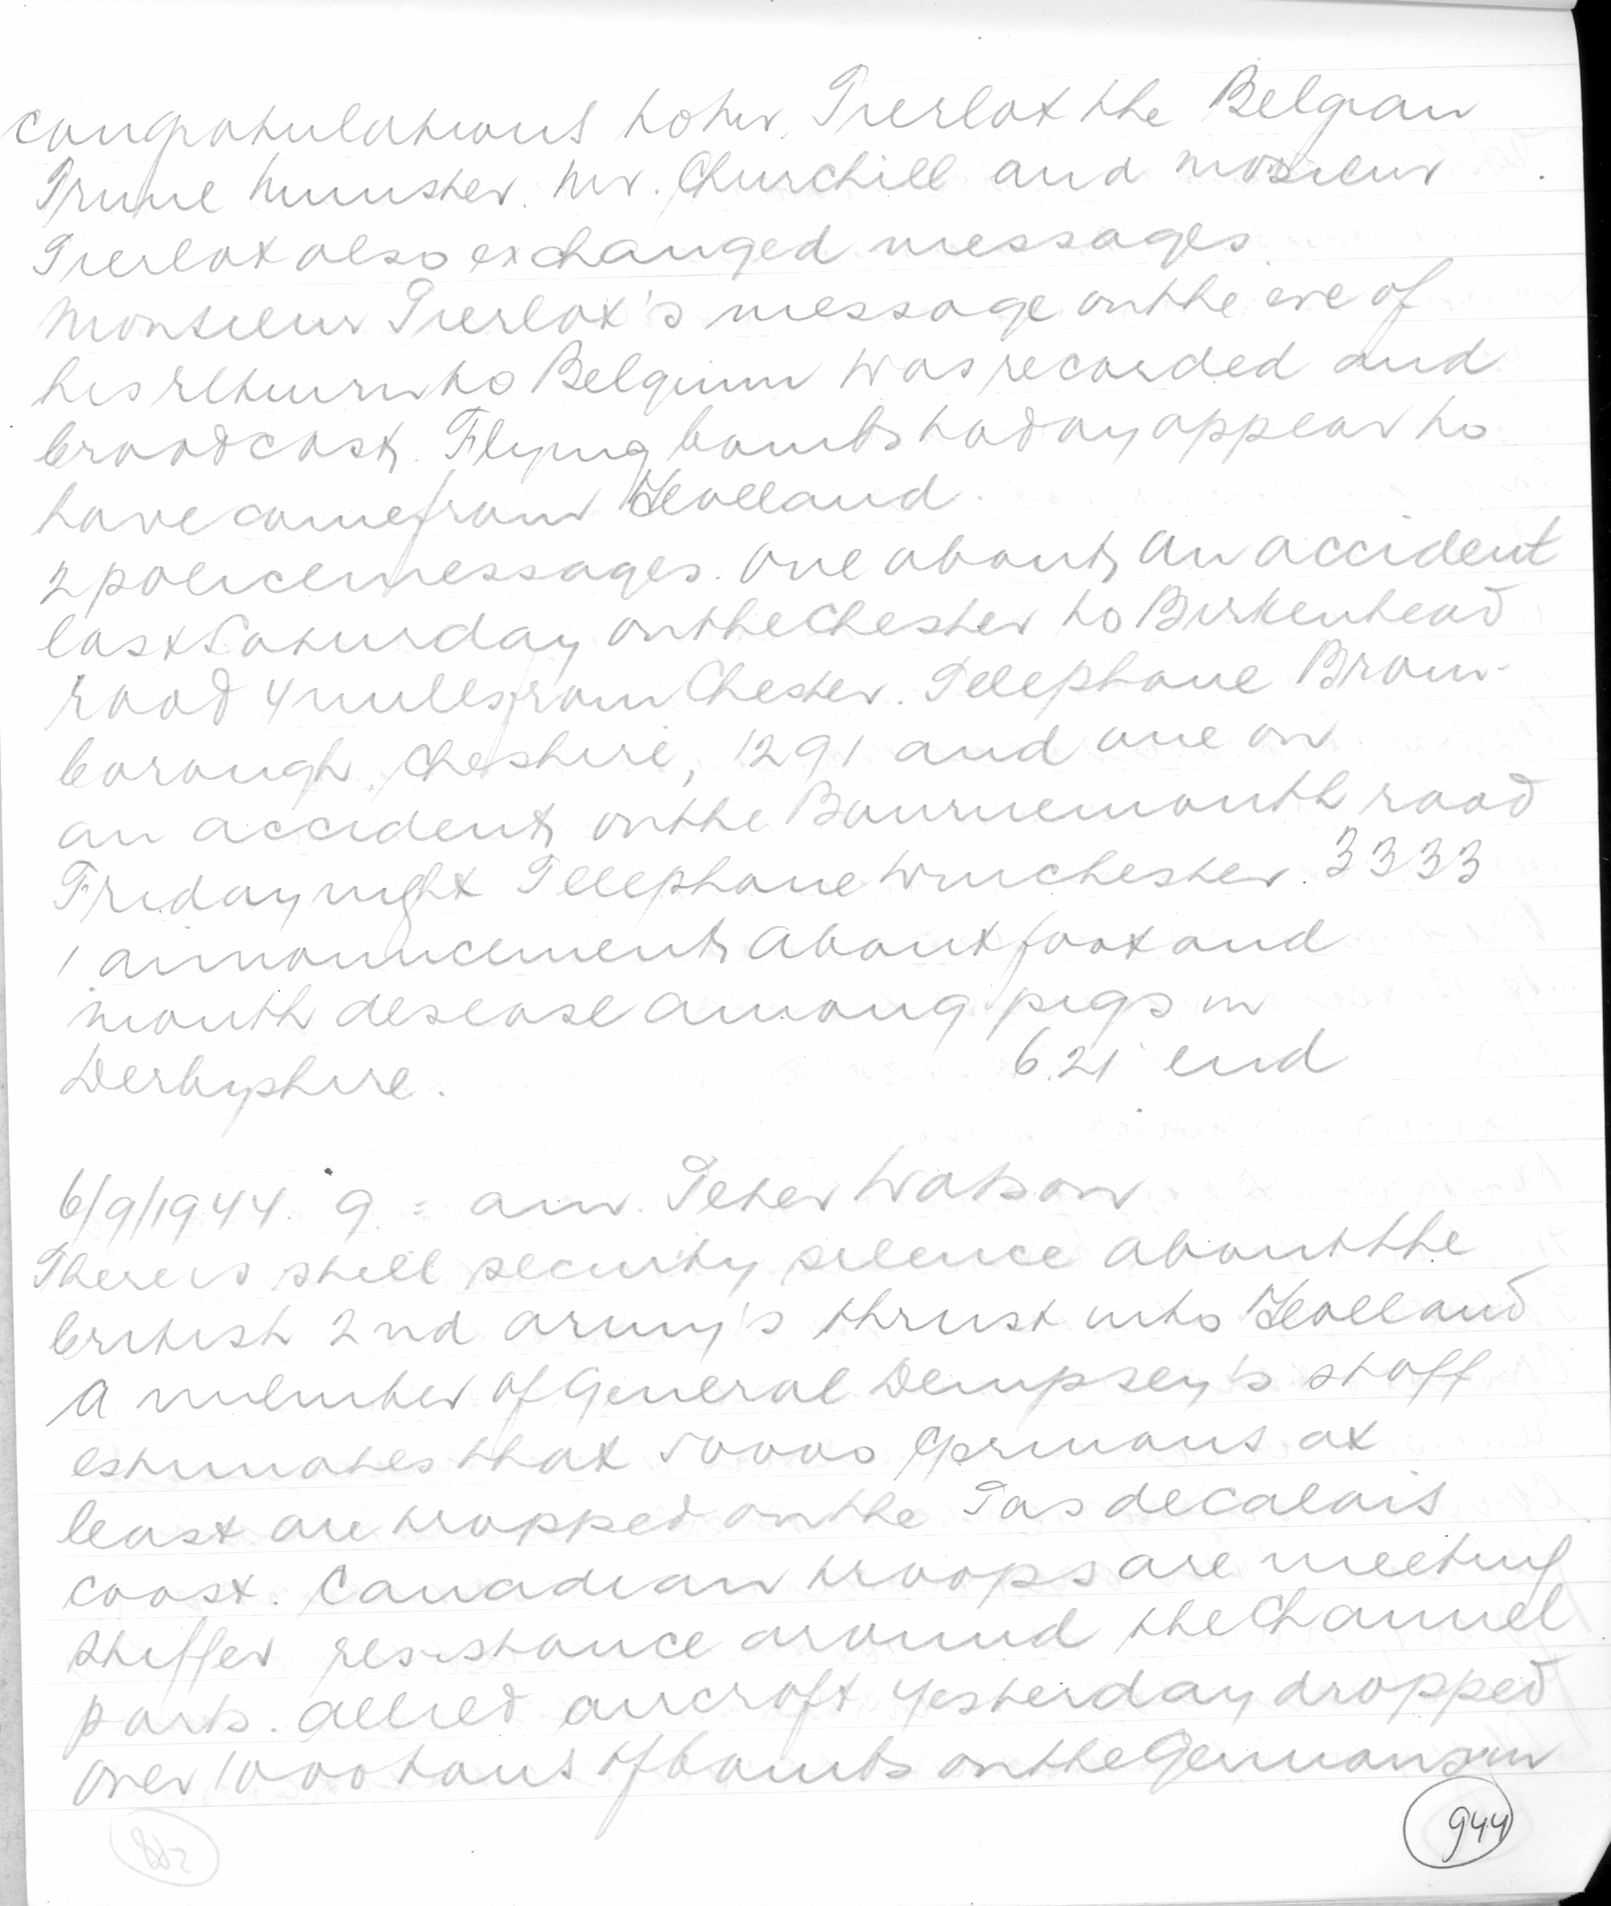 congratulations to Mr. Pierlot the Belgian
Prime Minister. Mr. Churchill and Mosieur
Pierlot also exchanged messages.
Monsieur Pierlot's message on the eve of
his return to Belgium was recorded and
broadcast. Flying bombs today appear to
have come from Holland.
2 police messages. One about an accident
last Saturday on the Chester to Birkenhead
road 4 miles from Chester. Telephone Brom-
borough, Cheshire, 1291 and one on
an accident on the Bournemouth road
Friday night Telephone Winchester. 3333
1 announcement about foot and
mouth desease among pigs in
Derbyshire. 6.21 end
6/9/1944. 9 = am. Peter Watson
There is still security silence about the
british 2nd army's thrust into Holland
A member of General Dempsey's staff
estimates that 50000 Germans at
least are trapped on the Pas de Calais
coast. Canadian troops are meeting
stiffer resistance around the Channel
ports. Allied aircraft yesterday dropped
over 1000 tons of bombs on the Germans in
944